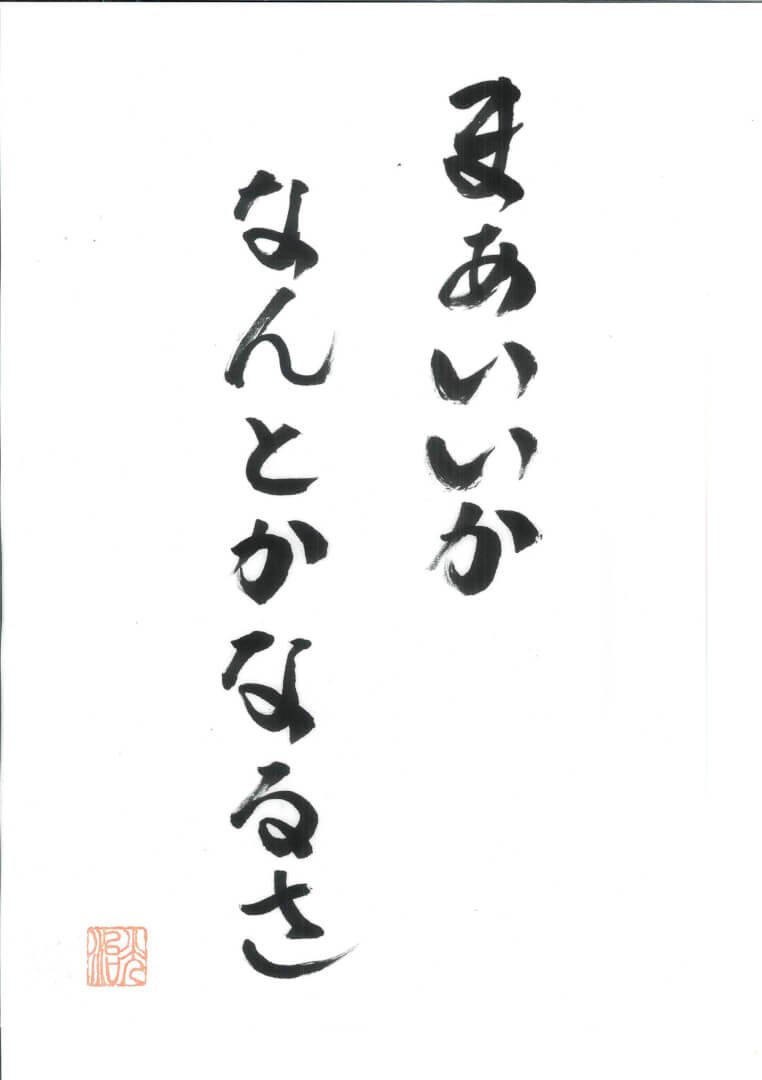 まあいいか
なんとかなるさ